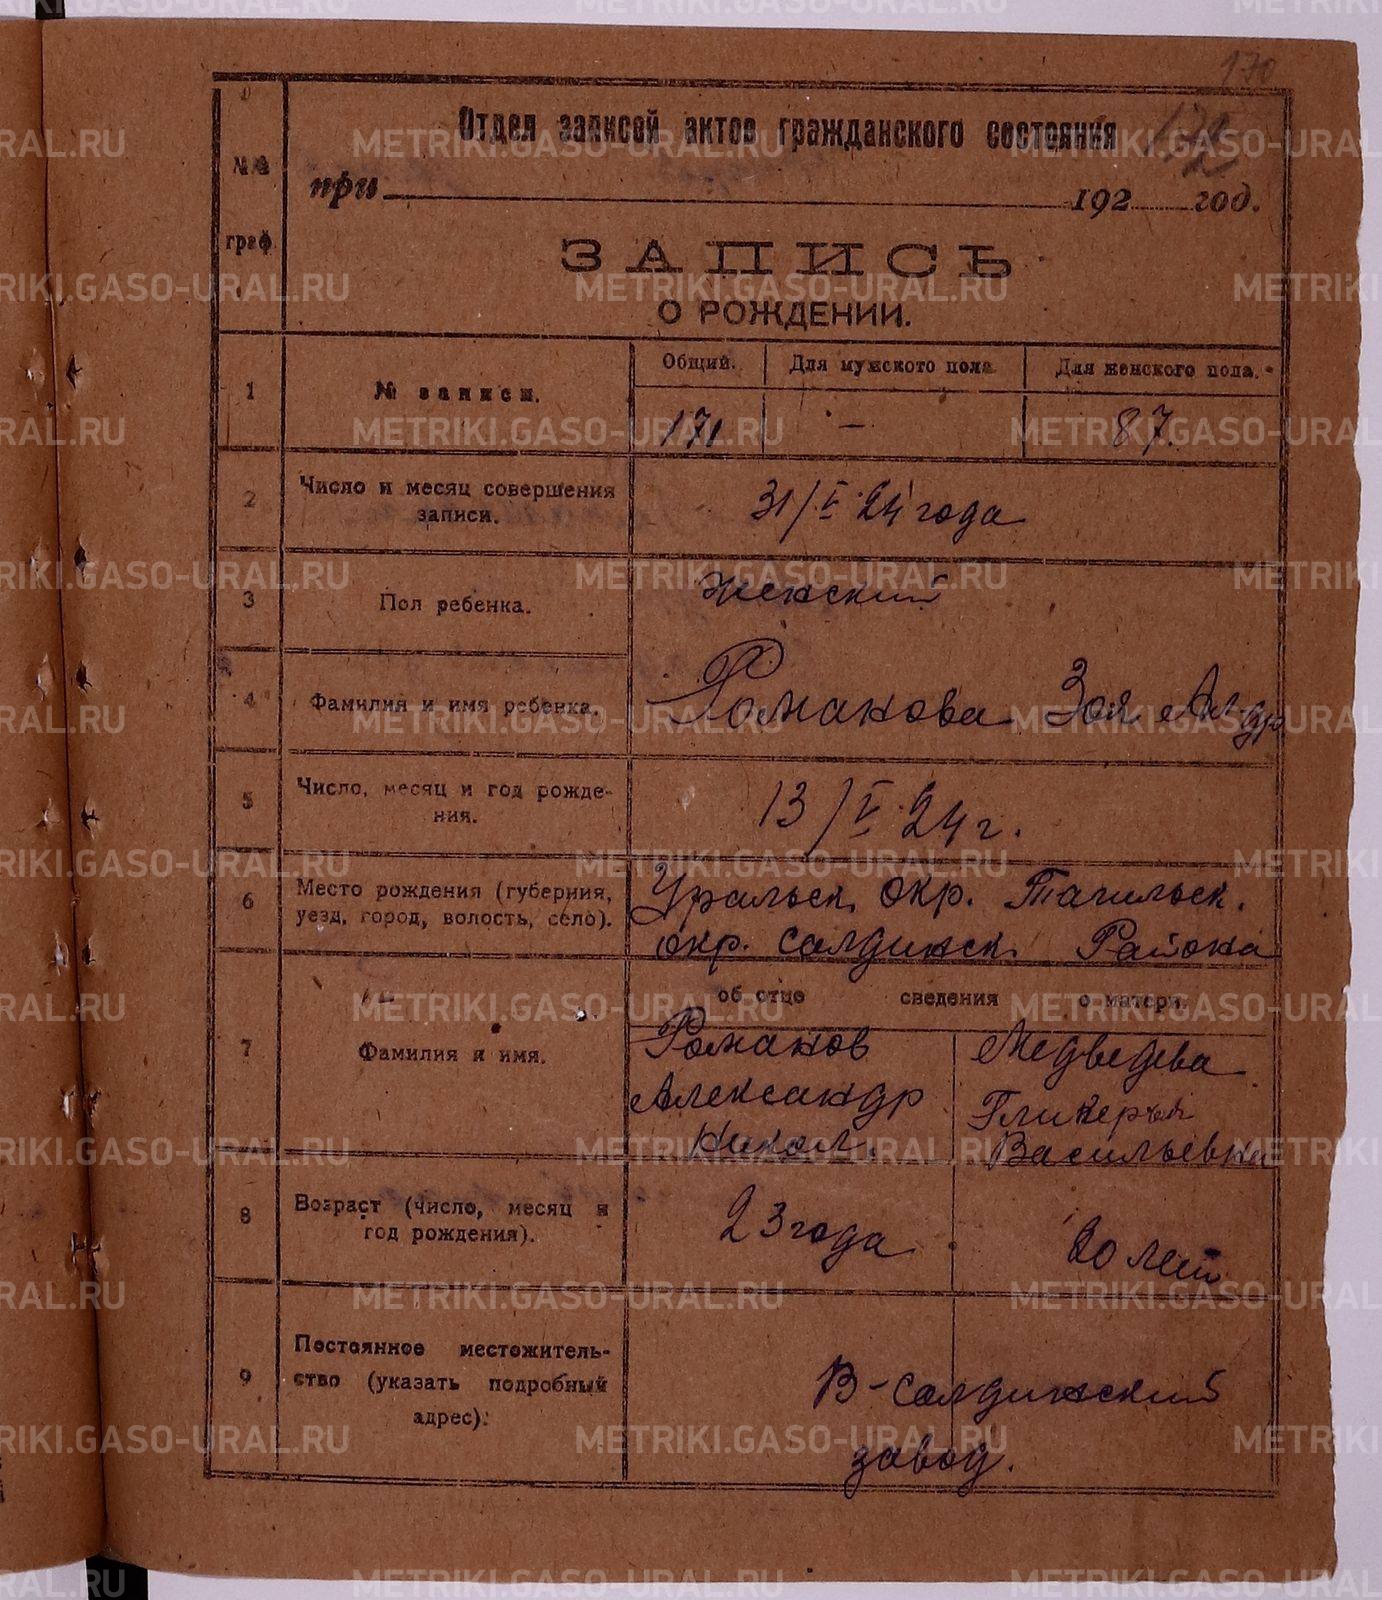 170
172
№№ граф.
Отдел записей актов гражданского состояния
при 192 год.
ЗАПИСЬ
О РОЖДЕНИИ.
1
№ записи.
Общий. Для мужского пола. Для женского пола.
171 — 87.
2
Число и месяц совершения
записи.
31/V 24 года
3
Пол ребенка.
женский
4
Фамилия и имя ребенка.
Романова Зоя Ал-др
5
Число, месяц и год рожде-
ния.
13/V 24 г.
6
Место рождения (губерния,
уезд, город, волость, село).
Уральск. окр. Тагильск.
окр. Салдинск. Района
об отце сведения о матери.
7
Фамилия и имя.
Романов
Александр
Никол.
Медведева
Гликерья
Васильевна
8
Возраст (число, месяц и
год рождения).
23 года
20 лет
9
Постоянное местожитель-
ство (указать подробный
адрес).
В-Салдинский
завод.
METRIKI.GASO-URAL.RU